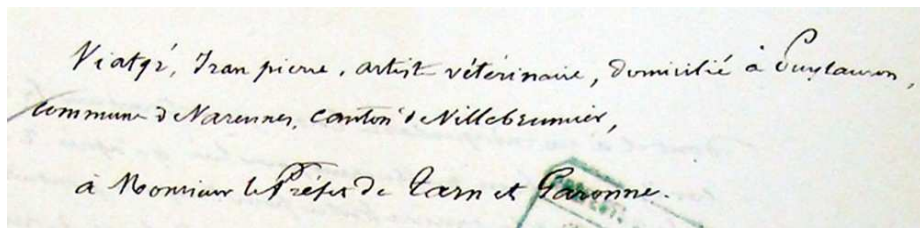 Viatgé, Jean pierre, artist vétérinaire, domicilié à Puylauron,
commune de Varennes, canton de Villebrumier,
à Monsieur le Préfet de Tarn et Garonne.